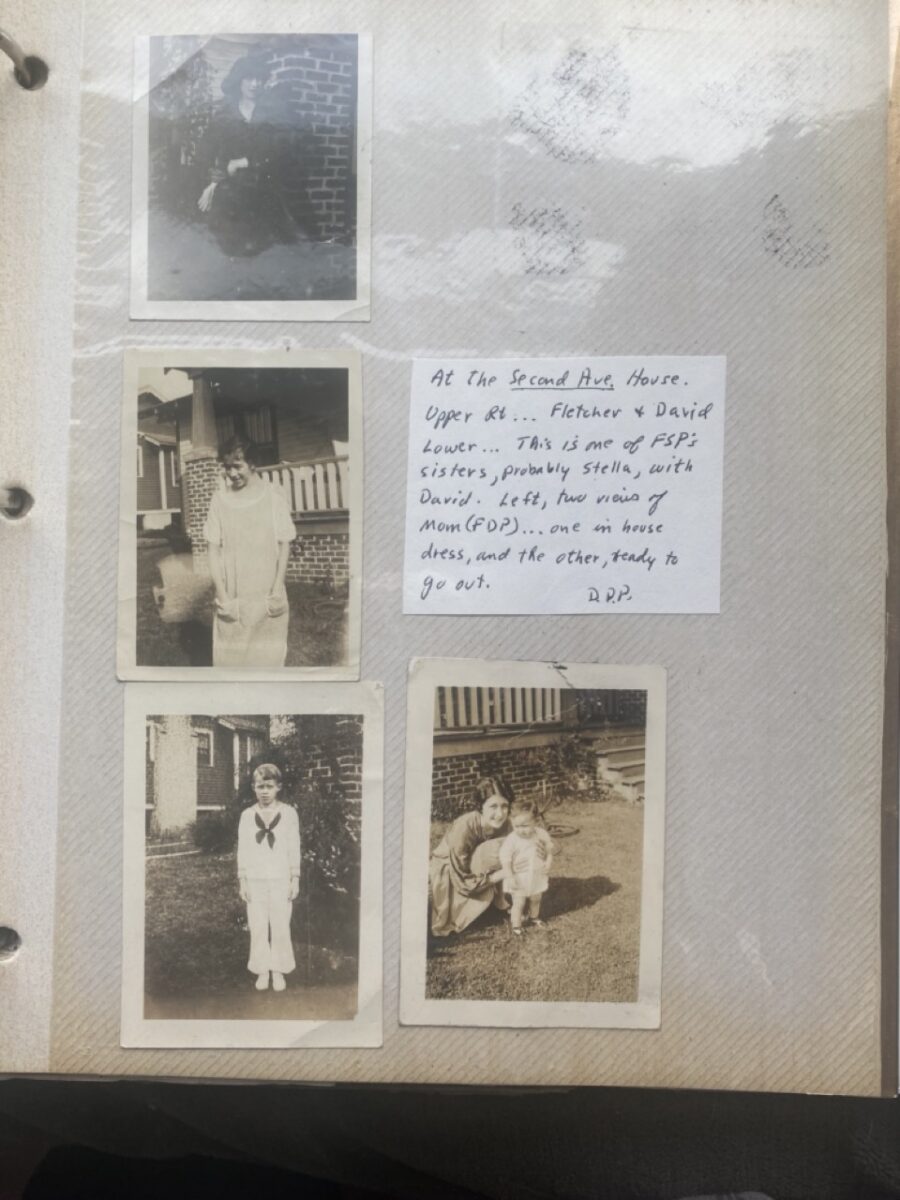 At the Second Ave. House.
Upper Rt... Fletcher & David
Lower... This is one of FSP's
sisters, probably Stella, with
David. Left, two views of
Mom (FDP)... one in house
dress, and the other, ready to
go out.
D.D.P.